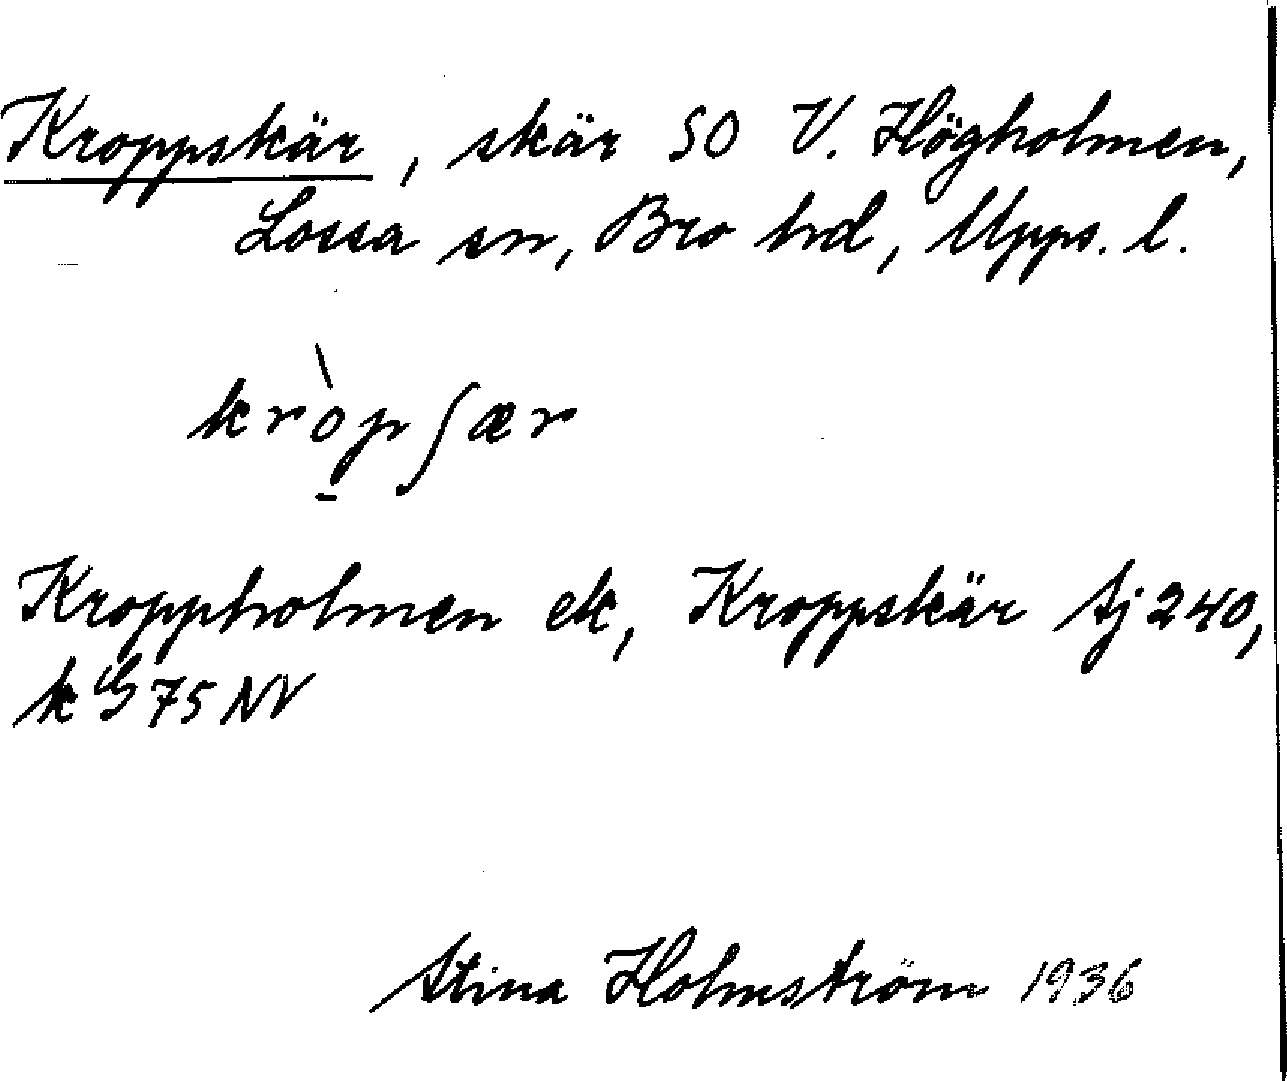 Kroppskär, skär SO V. Högholmen,
Lossa sn, Bro hd, Upps. l.
kròpʃær
Kroppholmen ek, Kroppskär Sj 240,
k G 75 NV
Stina Holmström 1936